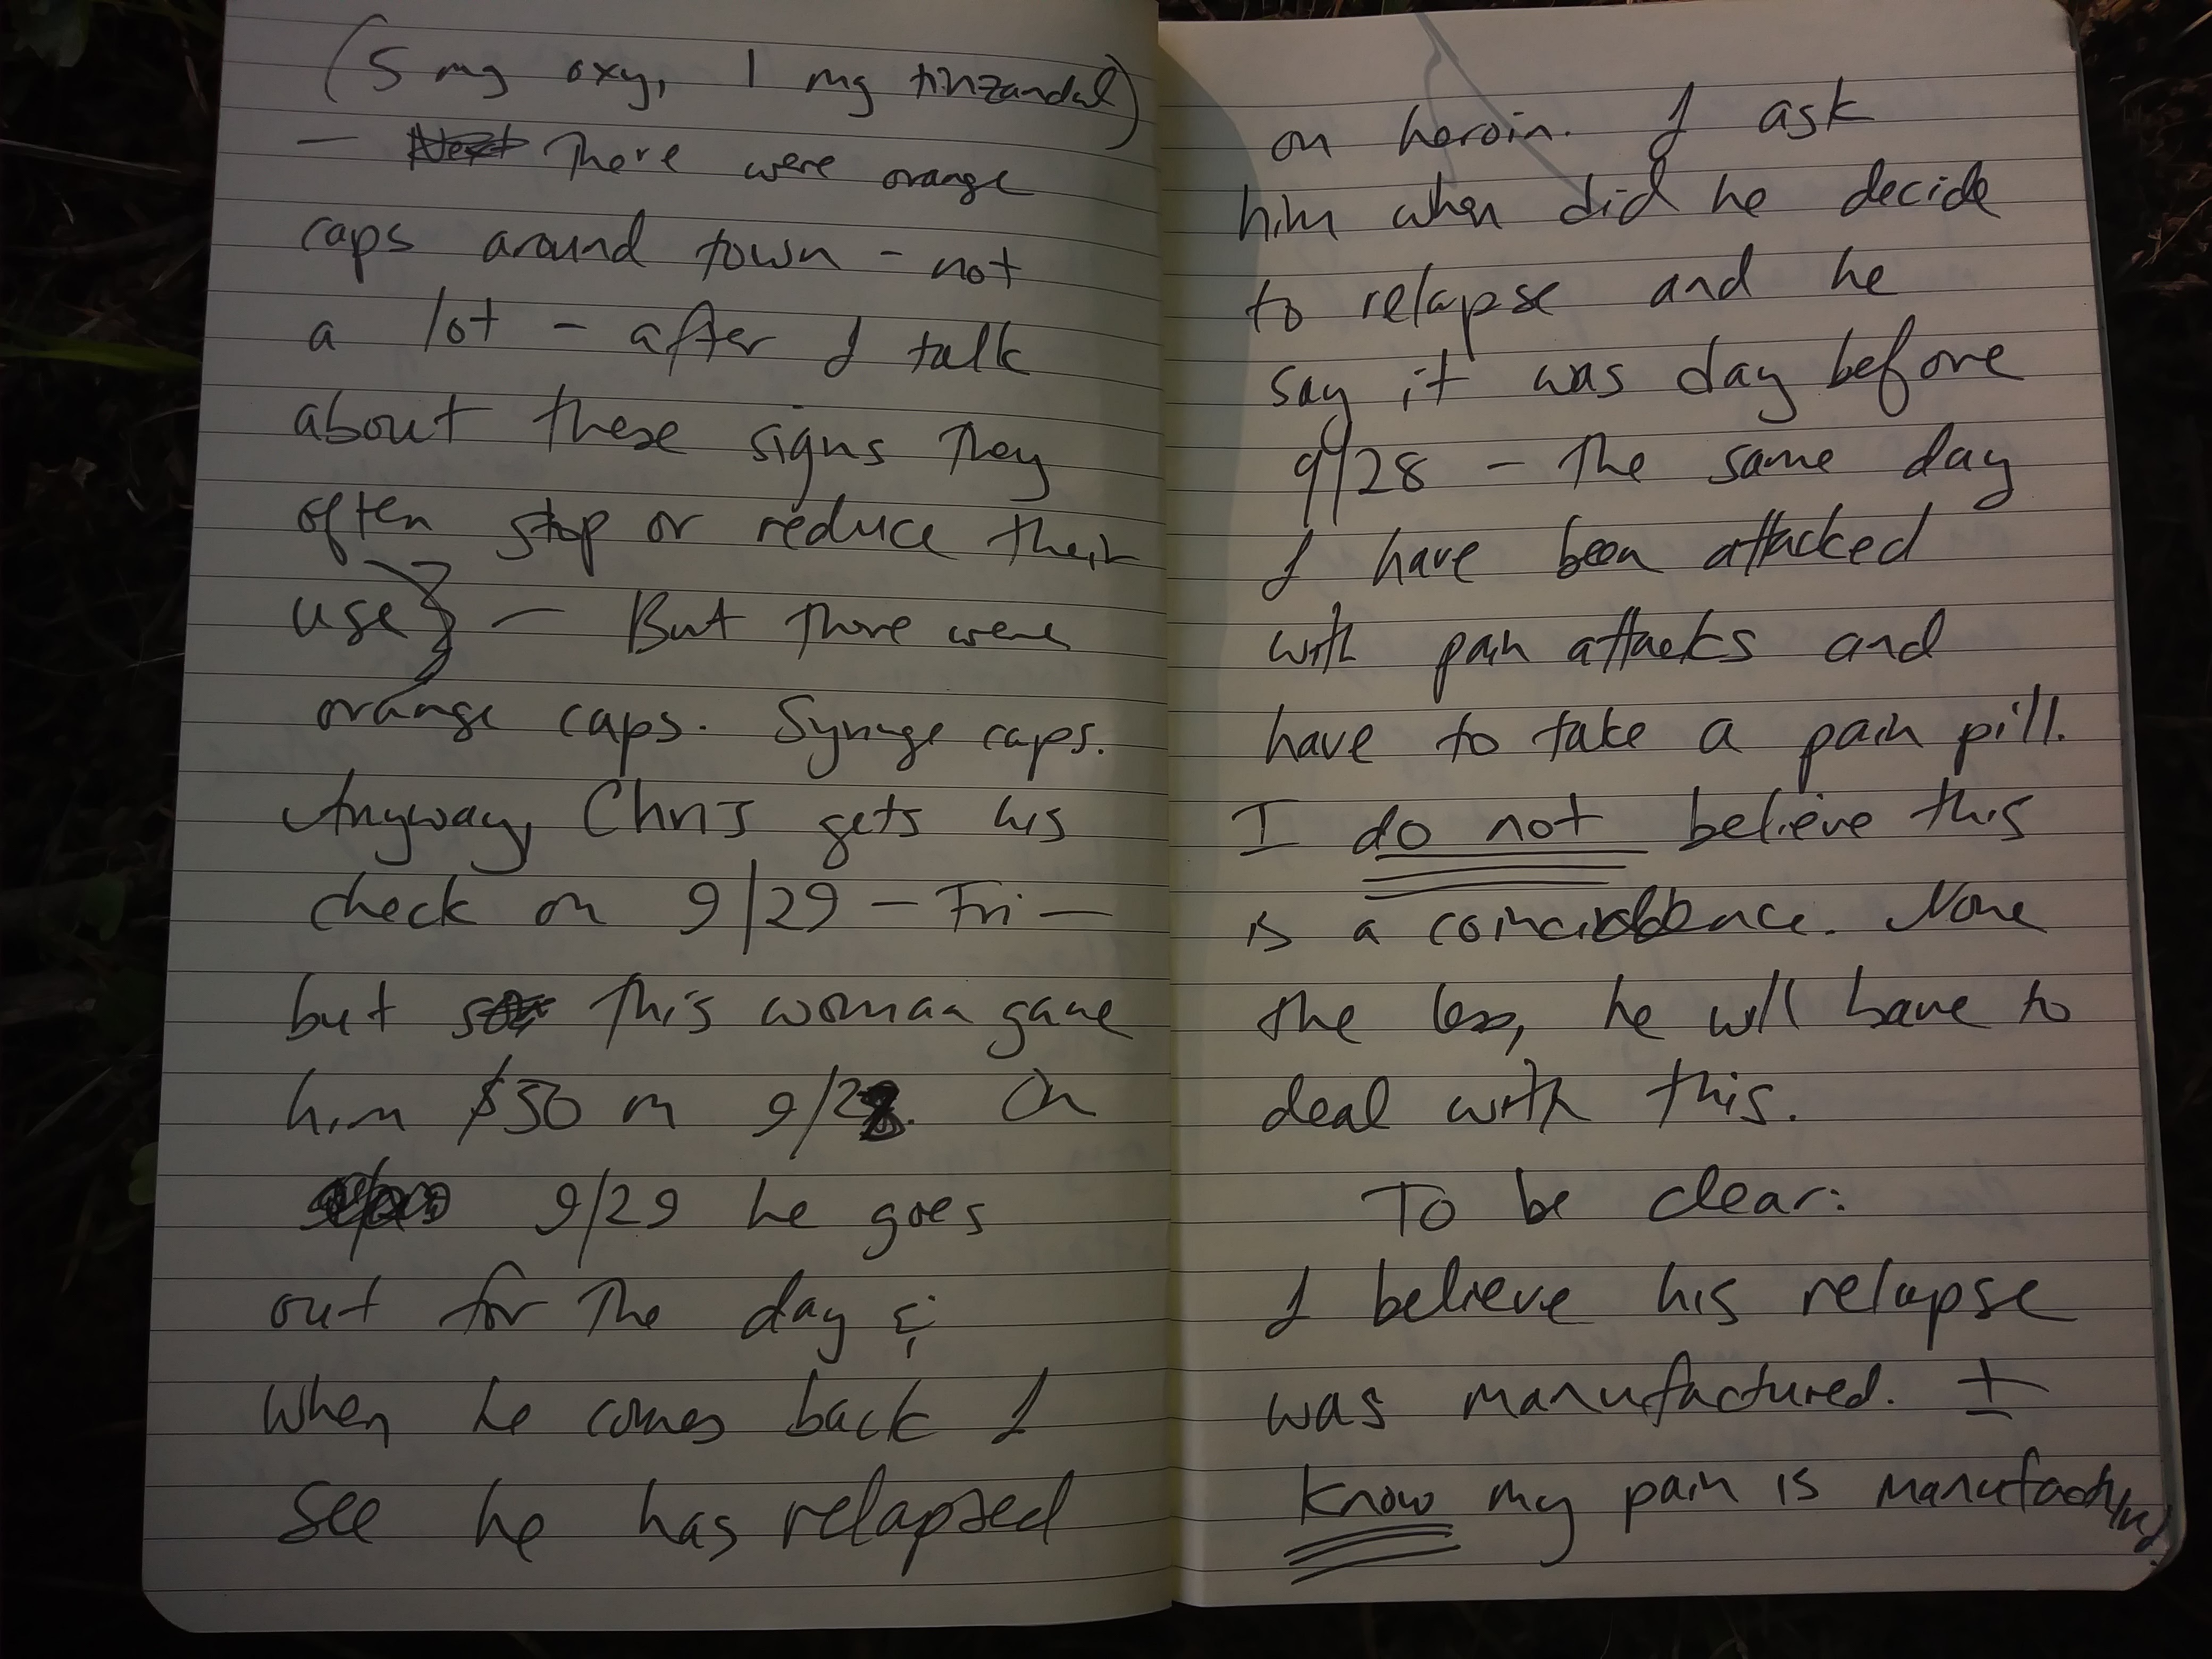 (5 mg oxy, 1 mg tinzandal)
— There were orange
caps around town - not
a lot - after I talk
about these signs they
often stop or reduce their
use} — But there were
orange caps. Syringe caps.
Anyway, Chris gets his
check on 9/29 — Fri —
but this woman gave
him $50 on 9/28. On
9/29 he goes
out for the day &
when he comes back I
see he has relapsed
on heroin. I ask
him when did he decide
to relapse and he
say it was day before
9/28 - the same day
I have been attacked
with pain attacks and
have to take a pain pill.
I do not believe this
is a coincidence. None
the less, he will have to
deal with this.
To be clear:
I believe his relapse
was manufactured. I
know my pain is manufactured